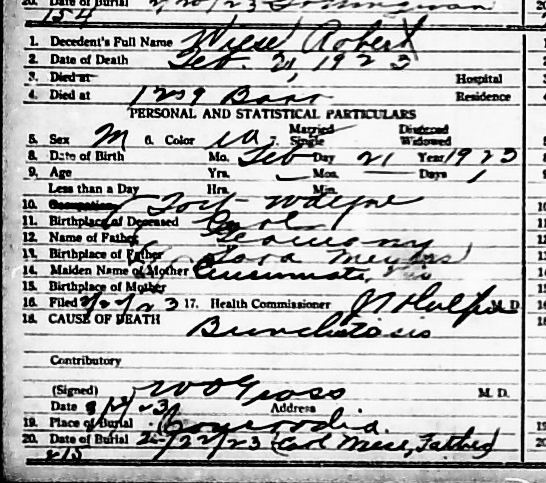 20. Date of Burial
154
1. Decedent's Full Name Wiese Robert
2. Date of Death Feb. 21, 1923
3. Died at Hospital
4. Died at 1229 Residence
PERSONAL AND STATISTICAL PARTICULARS
5. Sex M 6. Color W 7. Married Single Divorced Widowed
8. Date of Birth Mo. Feb Day 21 Year 1923
9. Age Yrs. — Mos. — Days 1
Less than a Day Hrs. Min.
10. Occupation Fort Wayne
11. Birthplace of Deceased Carl
12. Name of Father Germany
13. Birthplace of Father Meyers
14. Maiden Name of Mother Cincinnati
15. Birthplace of Mother
16. Filed 2/22/23 17. Health Commissioner M. D.
18. CAUSE OF DEATH
Contributory
(Signed) M. D.
Date Address
19. Place of Burial Concordia
20. Date of Burial 2/22/23 Carl Father
213